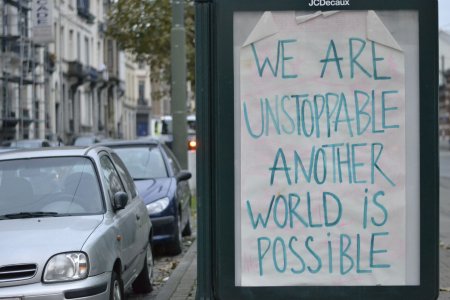 JCDecaux
WE ARE
UNSTOPPABLE
ANOTHER
WORLD iS
POSSiBLE